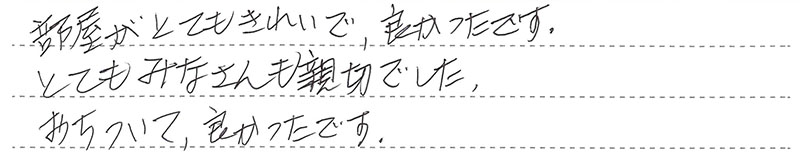 部屋がとてもきれいで,良かったです.
とてもみなさんも親切でした,
おちついて,良かったです.